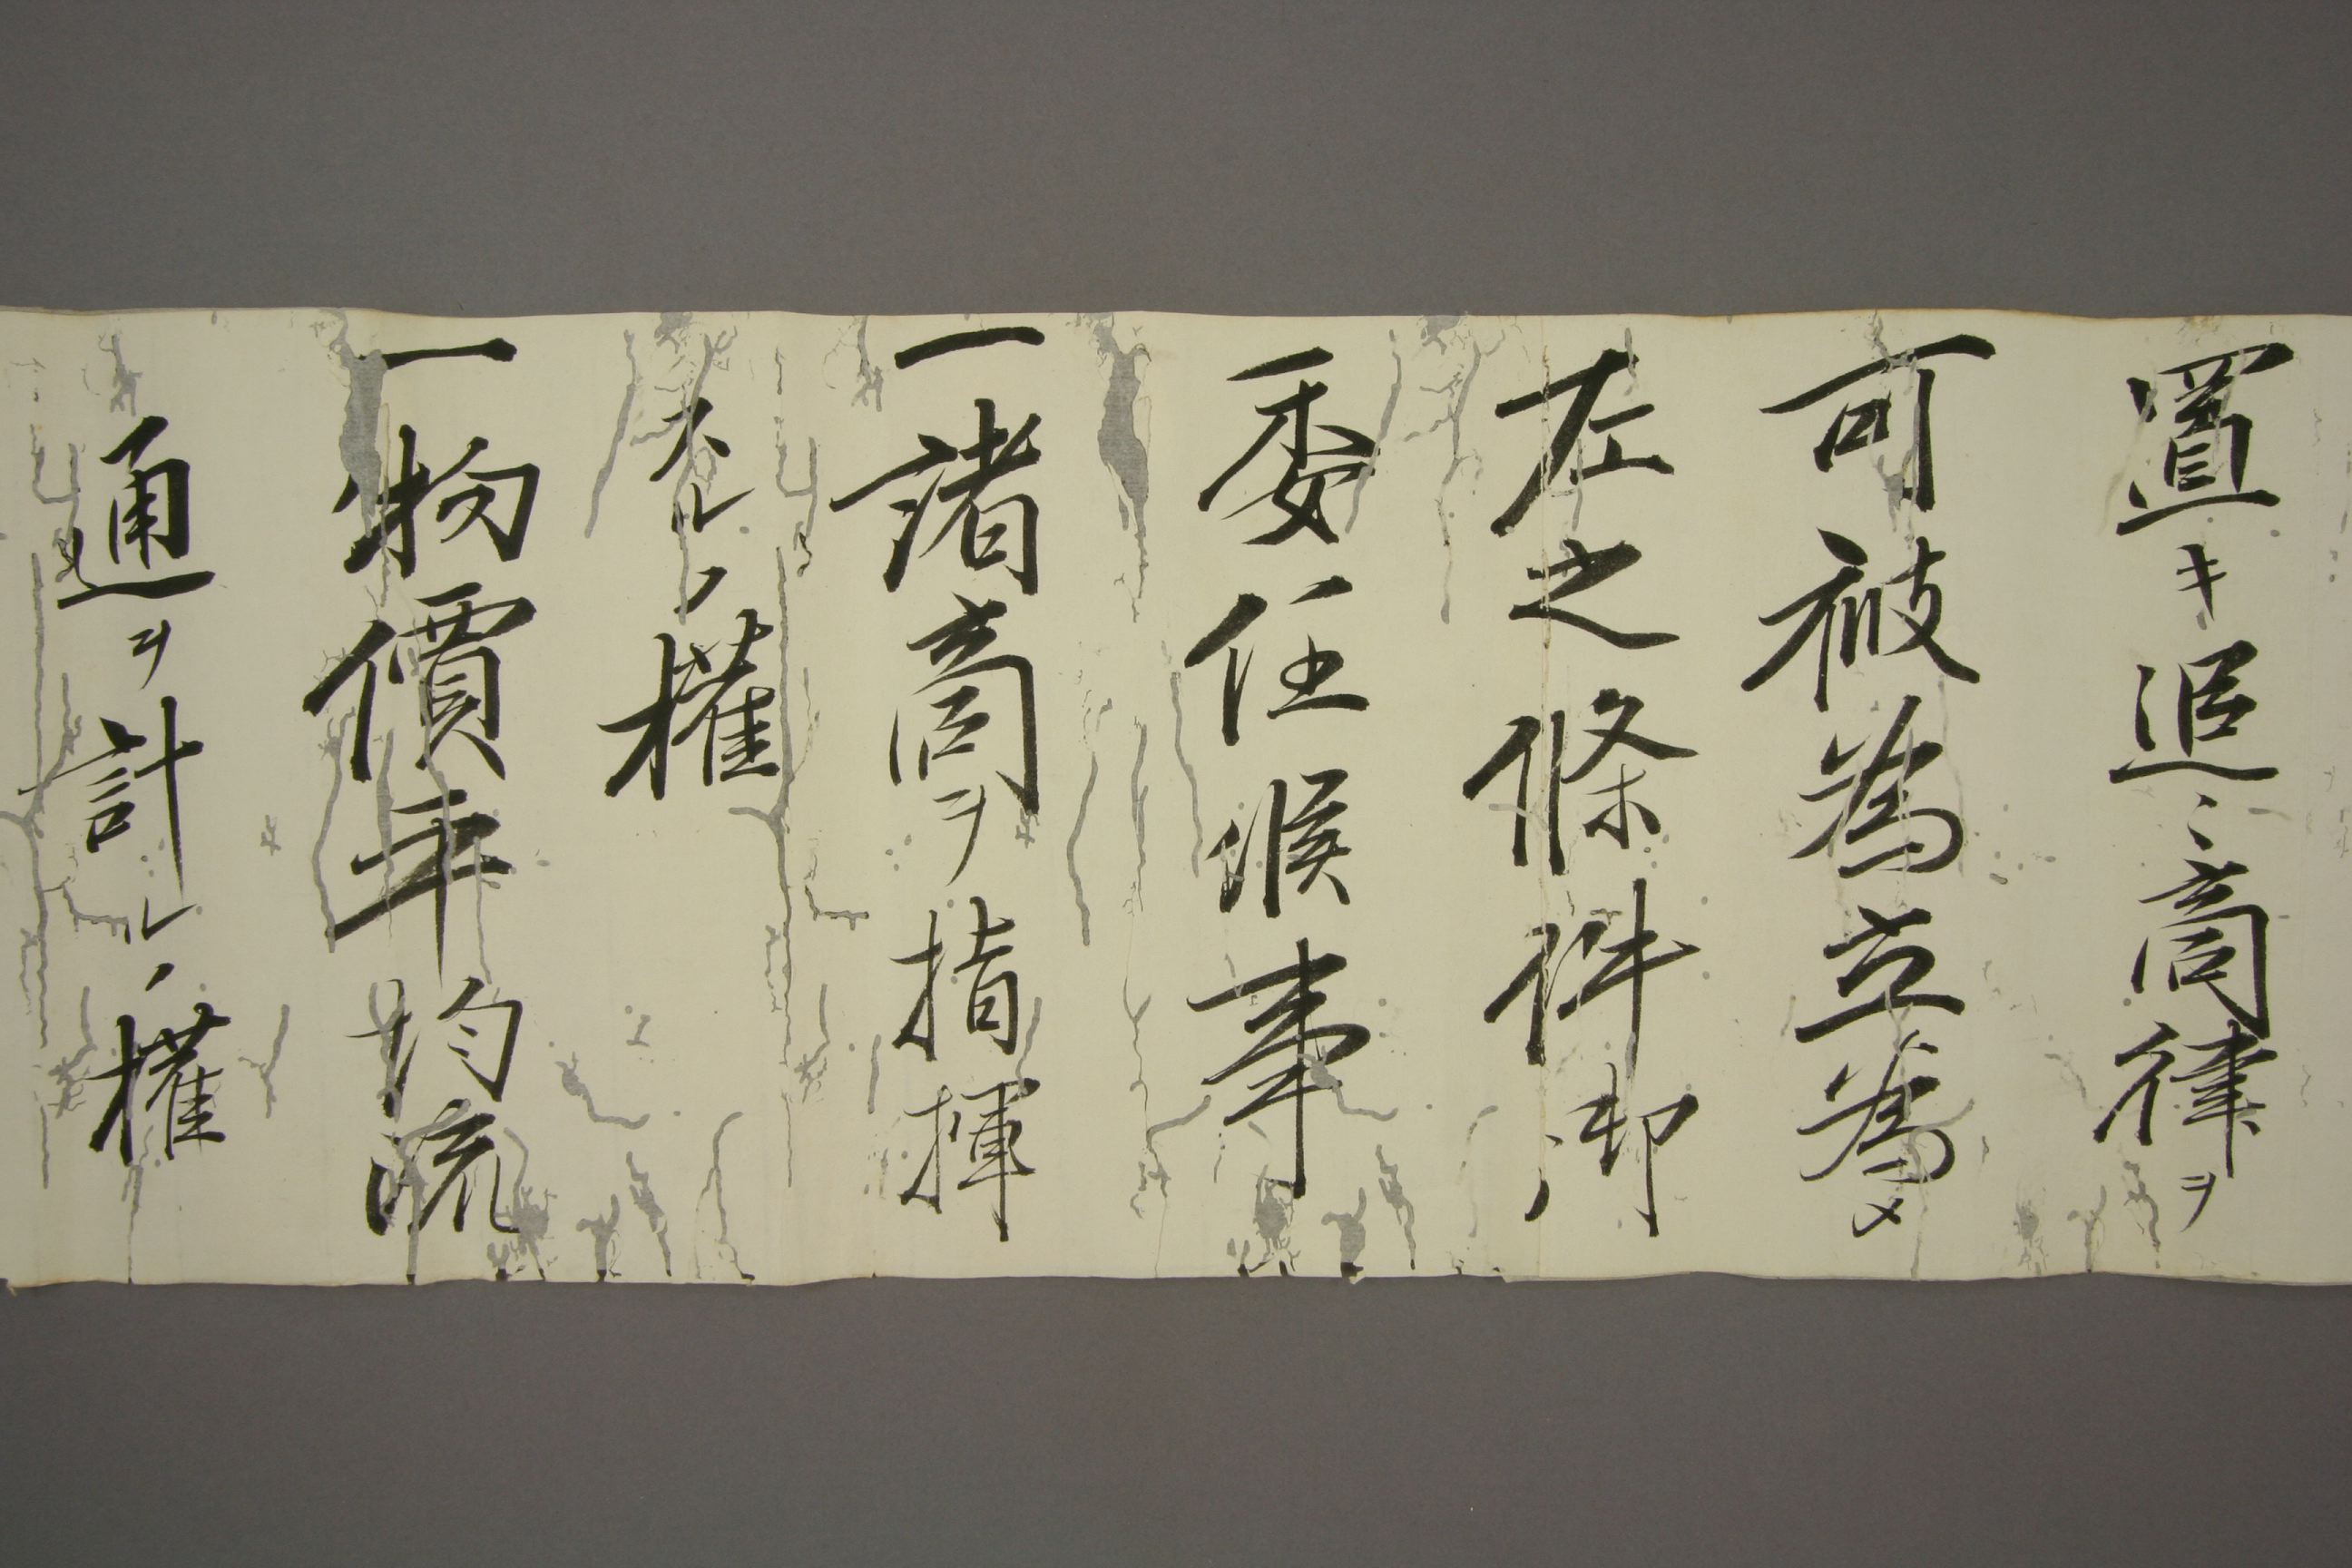 置キ追〻商律ヲ
可被為立為メ
左之條件御
委任候事
一諸商ヲ指揮
スルノ權
一物價平均流
通ヲ計ルノ權